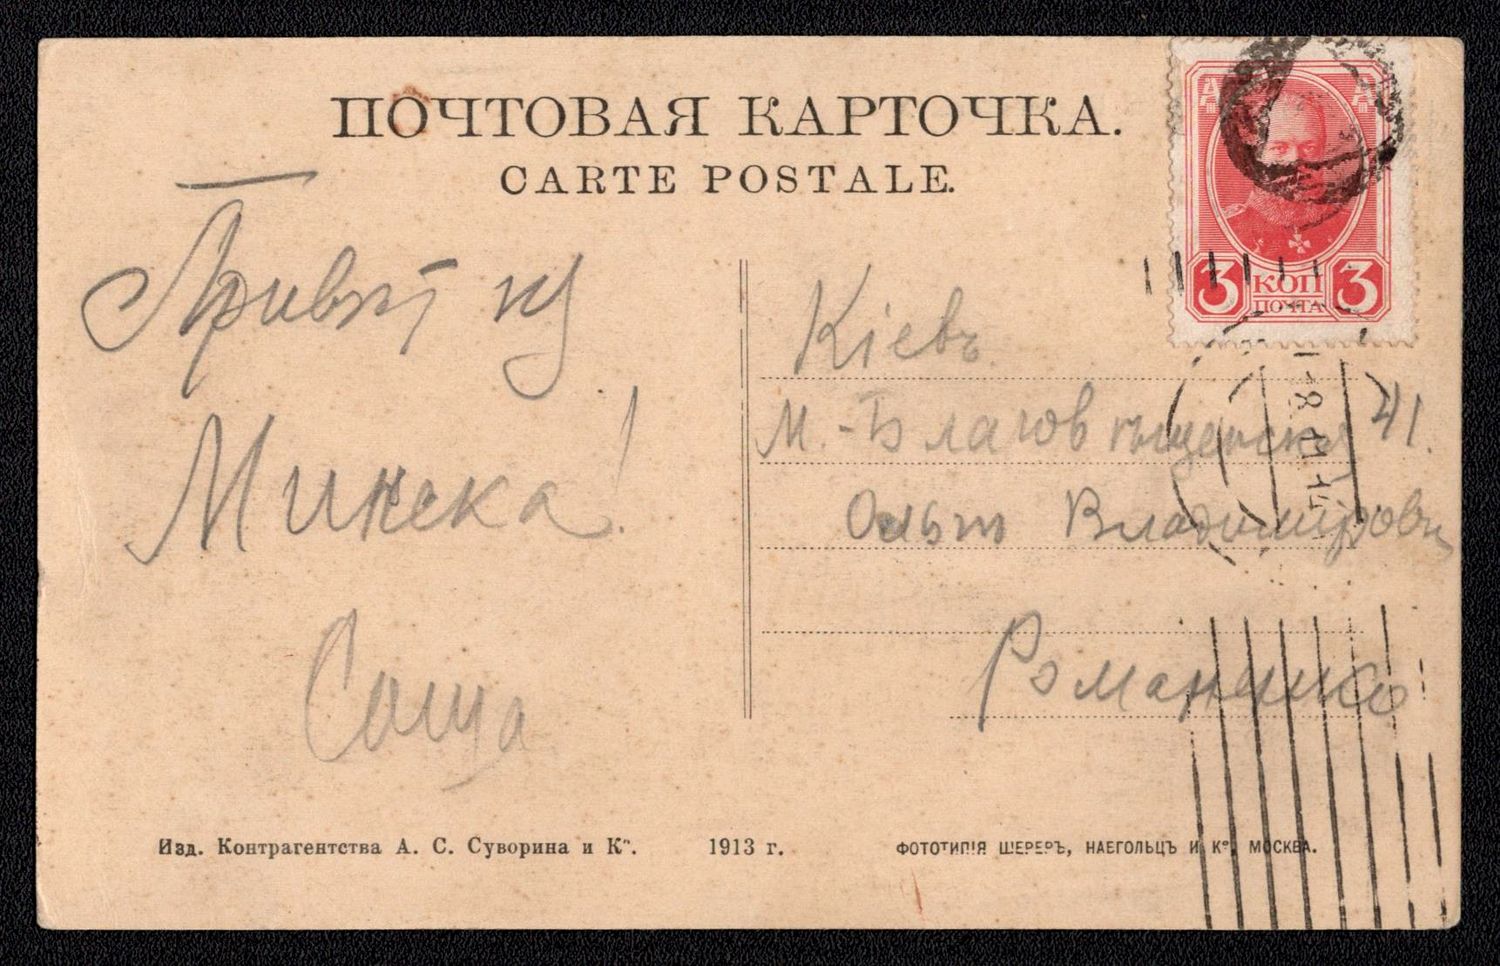 ПОЧТОВАЯ КАРТОЧКА.
CARTE POSTALE.
3 КОП 3
ПОЧТА
Привѣт из
Минска!
Саша
Кіевъ
М.-Благовѣщенская 41.
Ольгѣ Владимировнѣ
Романенко
Изд. Контрагентства А. С. Суворина и Кº. 1913 г.
ФОТОТИПІЯ ШЕРЕРЪ, НАБГОЛЬЦЪ И Кº. МОСКВА.